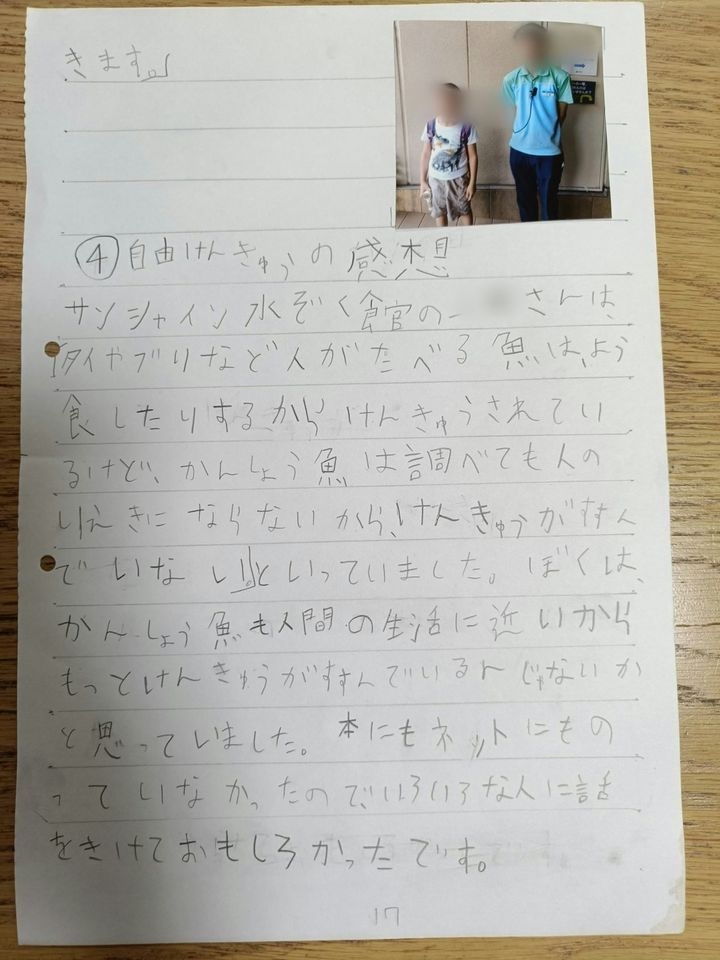 きます。」
④自由けんきゅうの感想
サンシャイン水ぞく館の さんは、
「タイやブリなど人がたべる魚は、よう
食したりするからけんきゅうされてい
るけど、かんしょう魚は調べても人の
りえきにならないから、けんきゅうがすすん
でいない」といっていました。ぼくは、
かんしょう魚も人間の生活に近いから
もっとけんきゅうがすすんでいるんじゃないか
と思っていました。本にもネットにもの
っていなかったので、いろいろな人に話
をきけておもしろかったです。
17